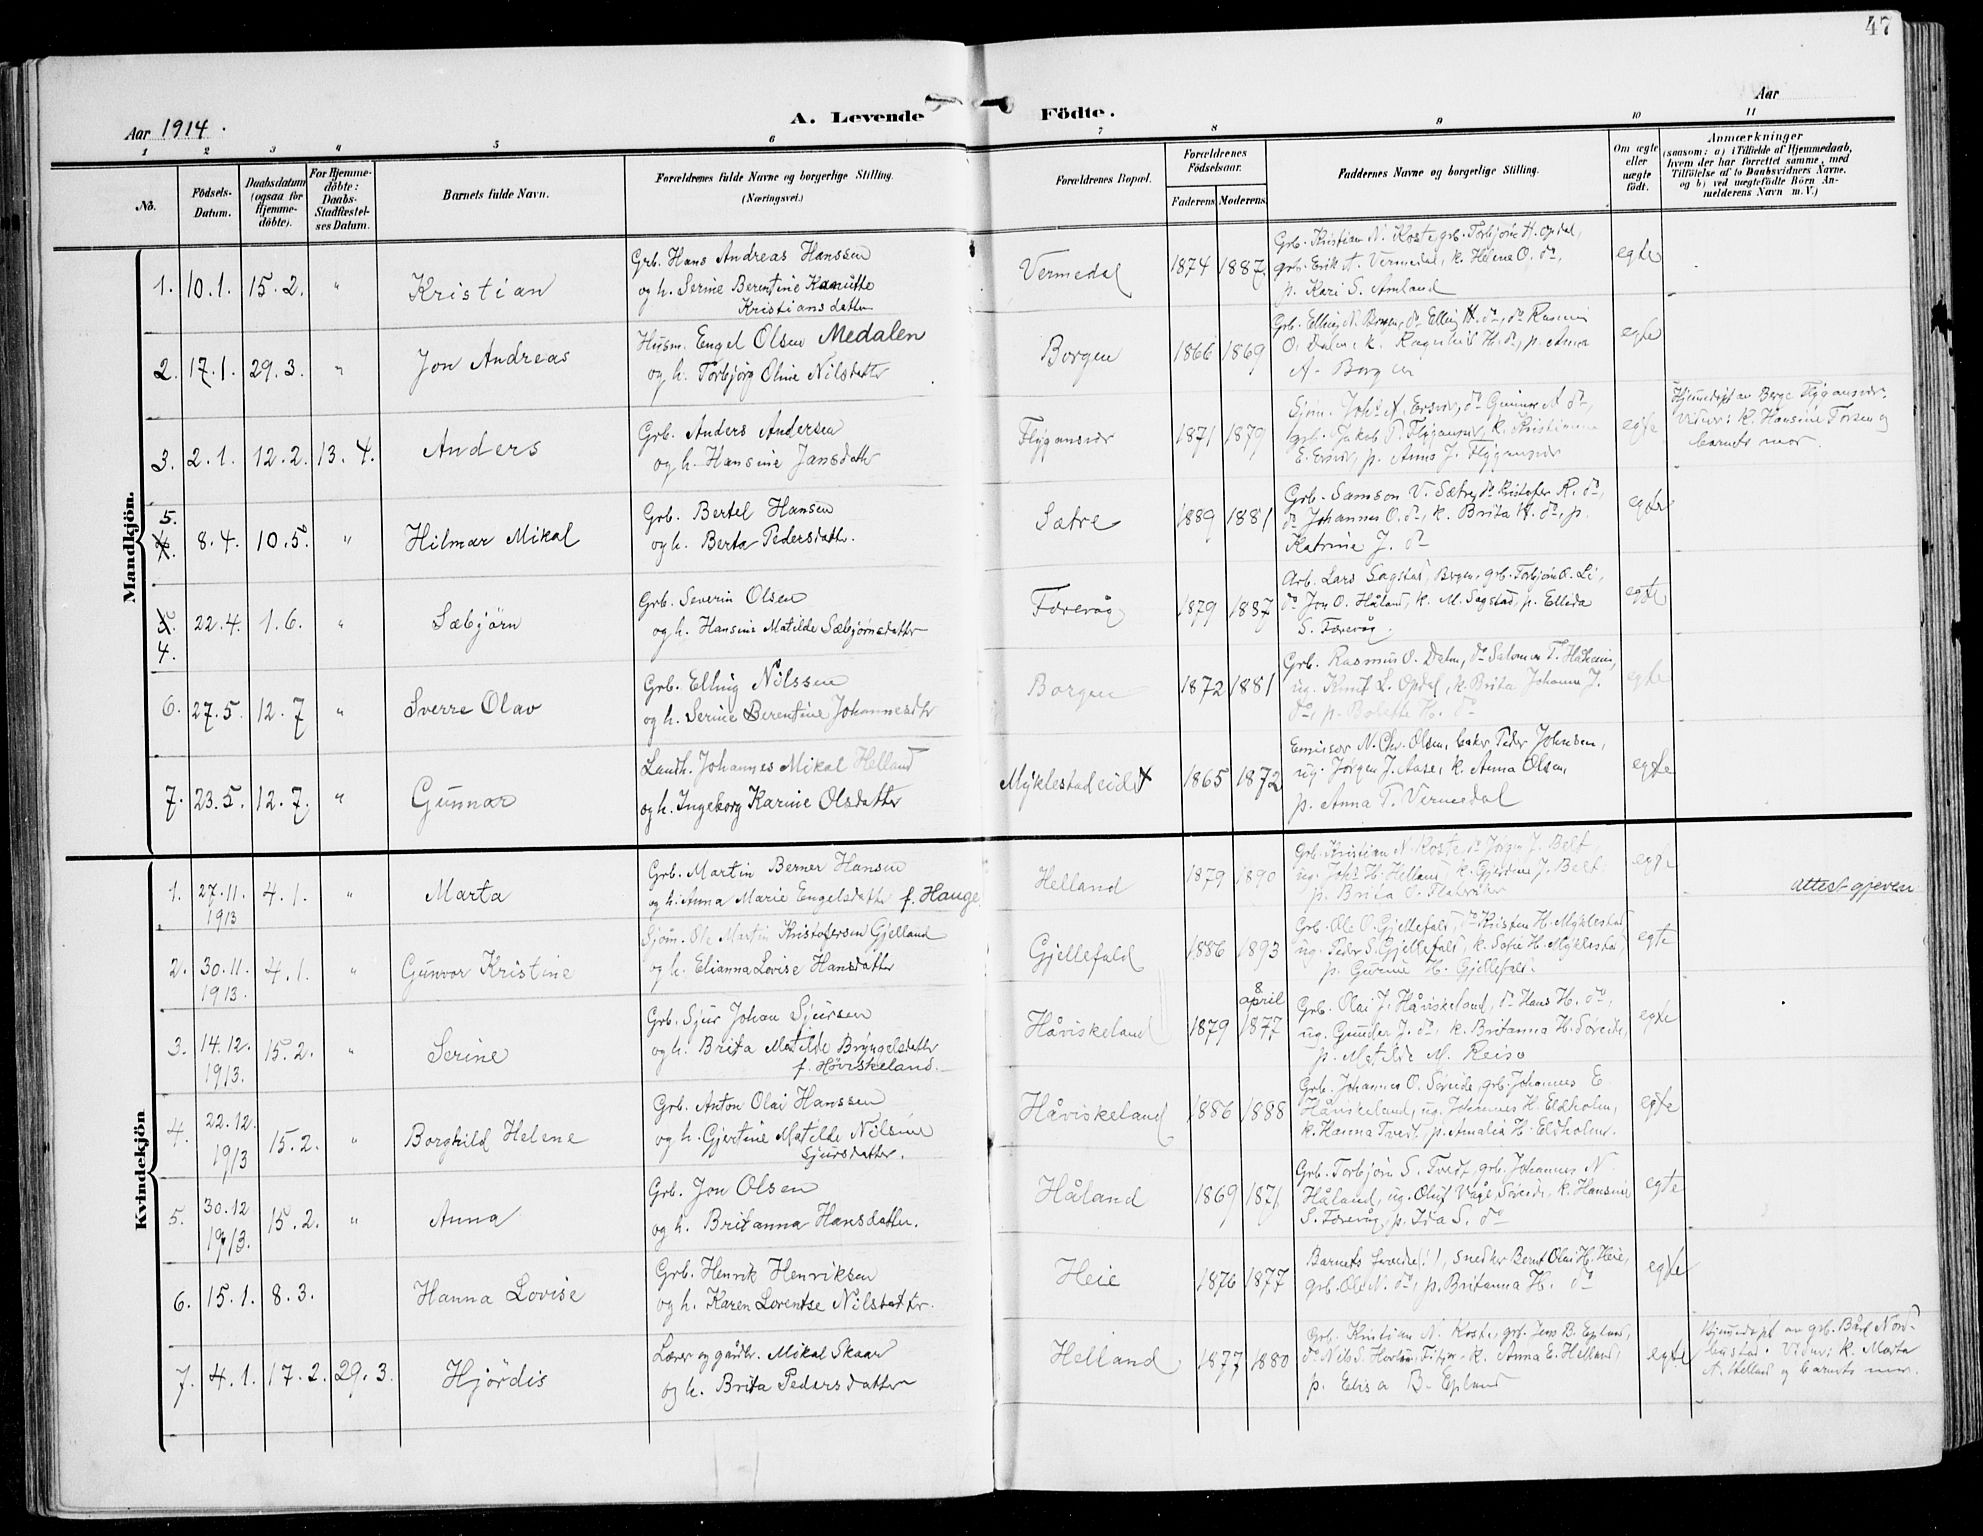 47
Aar 1914. A. Levende Födte. Aar
1 2 3 4 5 6 7 8 9 10 11
No.
Födsels-Datum.
Daabsdatum (ogsaa for Hjemme-döbte).
For Hjemme-döbte: Daabs-Stadfæstel-ses Datum.
Barnets fulde Navn.
Forældrenes fulde Navne og borgerlige Stilling.
(Næringsvei.)
Forældrenes Bopæl.
Forældrenes Födselsaar.
Faderens Moderens
Faddernes Navne og borgerlige Stilling.
Om ægte eller uægte födt.
Anmærkninger
(saasom: a) i Tilfælde af Hjemmedaab,
hvem der har forrettet samme, med
Tilföielse af to Daabsvidners Navne,
og b) ved uægtefödte Börn An-
melderens Navn m. V.)
Mandkjön.
1. 10.1. 15.2. " Kristian
Grb. Hans Andreas Hanssen
og h. Serine Berentine Knutte
Kristiansdatter
Vermedal 1874 1887
Grb. Kristian N. Koste, grb. Torbjörn H. Opdal,
grb. Erik A. Vermedal, k. Helene O. do,
p. Kari S. Amland
egte
2. 17.1. 29.3. " Jon Andreas
Husm. Engel Olsen Medalen
og h. Torbjörg Oline Nilsdatter
Borgen 1866 1869
Grb. Elling N. Borgen, do Elling H. do, do Rasmus
O. Dalen, k. Ragnhild H. do, p. Anna
A. Borgen
egte
3. 2.1. 12.2. 13.4. Anders
Grb. Anders Andersen
og h. Hansine Jansdatter
Flygansvær 1871 1879
Sjöm. Johs A. Ersvær, do Gunnar A. do,
grb. Jakob P. Flygansvær, k. Kristianna
E. Ersvær, p. Anna J. Flygansvær
egte
Hjemedöpt av Berge Flygansvær.
Vidner: k. Hansine Torsen og
barnets mor.
5. 8.4. 10.5. " Hilmar Mikal
Grb. Bertel Hansen
og h. Berta Pedersdatter.
Sætre 1889 1881
Grb. Samson V. Sætre, do Kristofer R. do,
do Johannes O. do, k. Brita H. do, p.
Katrine J. do
egte
4. 22.4. 1.6. " Sæbjörn
Grb. Severin Olsen
og h. Hansine Matilde Sæbjörnsdatter
Færevåg 1879 1887
Arb. Lars Sagstad, Bergen, grb. Torbjörn O. Li,
do Jon O. Håland, k. M. Sagstad, p. Ellida
S. Færevåg.
egte
6. 27.5. 12.7 " Sverre Olav
Grb. Elling Nilssen
og h. Serine Berentine Johannesdtr
Borgen 1872 1881
Grb. Rasmus O. Dalen, do Salomon T.
ug. Knut L. Opdal, k. Brita Johanna J.
do, p. Bolette H. do
egte
7. 23.5. 12.7. " Gunnar
Landh. Johannes Mikal Helland
og h. Ingeborg Karine Olsdatter
Myklestadeidet 1865 1872
Emissær N. Chr. Olsen, Peder Johnsen,
ug. Jörgen J. Aase, k. Anna Olsen,
p. Anna T. Vermedal
egte
Kvindekjön
1. 27.11. 1913 4.1. " Marta
Grb. Martin Berner Hansen
og h. Anna Marie Engelsdatter f. Hauge.
Helland 1879 1890
Grb. Kristian N. Koste, do Jörgen J. Belt,
ug. Johs H. Helland, k. Gjertine J. Belt
p. Brita O.
egte
attest gjeven.
2. 30.11. 1913. 4.1. " Gunvor Kristine
Sjöm. Ole Martin Kristofersen Gjelland
og h. Elianna Lovise Hansdatter
Gjellefald 1886 1893
Grb. Ole O. Gjellefald, do Kristen H. Myklestad
ug. Peder S. Gjellefald, k. Sofie H. Myklestad,
p. Gurine H. Gjellefald.
egte
3. 14.12. 1913. 15.2. " Serine
Grb. Sjur Johan Sjursen
og h. Brita Matilde Bryngelsdatter
f. Höviskeland.
Håviskeland 1879 8 april 1877
Grb. Olai J. Håviskeland, do Hans H. do,
ug. Gunder J. do, k. Britanna H. Söreide,
p. Matilde M. Reisö
egte
4. 22.12. 1913 15.2. " Borghild Helene
Grb. Anton Olai Hanssen
og h. Gjertine Matilde Nilsine
Sjursdatter.
Håviskeland 1886 1888
Grb. Johannes O. Söreide, grb. Johannes E.
Håviskeland, ug. Johannes H. Eldholm,
k. Hanna Tvedt, p. Amalia H. Eldholm.
egte
5. 30.12 1913. 15.2. " Anna
Grb. Jon Olsen
og h. Britanna Hansdatter.
Håland 1869 1871
Grb. Torbjörn S. Tvedt, grb. Johannes N.
Håland, ug. Oluf Våge, Söreide, k. Hansine
S. Færevåg, p. Ida S. do
egte
6. 15.1. 8.3. Hanna Lovise
Grb. Henrik Henriksen
og h. Karen Lorentse Nilsdatter.
Heie 1876 1877
Barnets, snedker Bernt Olai H. Heie,
grb. Ole N. do, p. Britanna H. do
egte
7. 4.1. 17.2. 29.3. Hjördis
Lærer og gårdbr. Mikal Skaar
og h. Brita Pedersdatter
Helland 1877 1880
Grb. Kristian N. Koste, grb. Jens B. Epland,
do Nils S. Hovland, Fitjar, k. Anna E. Helland,
p. Elisa B. Epland
egte
Hjemedöpt av grb. Bård Nord-
bustad. Vidner: k. Marta
A. Helland og barnets mor.